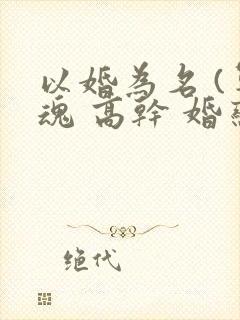 以婚為名(
魂 高幹 婚
絕代